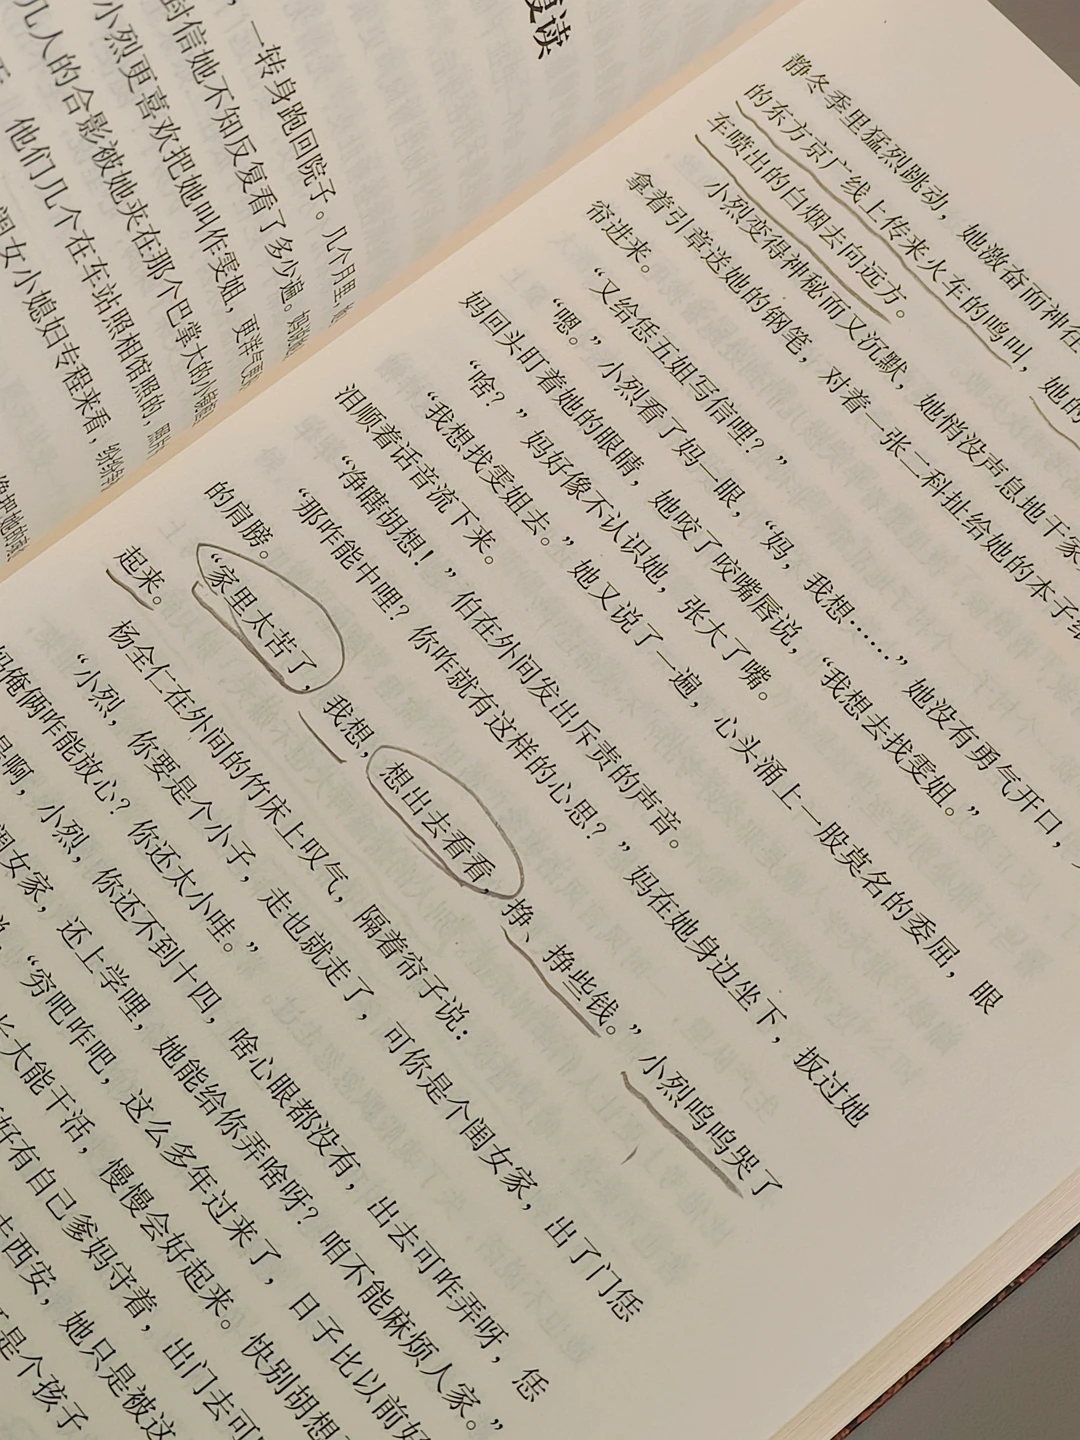 复读
，一转身跑回院子。几个月里，
封信她不知反复看了多少遍。
小烈更喜欢把她叫作雯姐，更详
几人的合影被她夹在那个巴掌大的小
他们几个在车站照相馆照的，
闺女小媳妇专程来看，
静冬季里猛烈跳动，她激奋而神往
的东方京广线上传来火车的鸣叫，她的
车喷出的白烟去向远方。
小烈变得神秘而又沉默，她悄没声息地干家
拿着引章送她的钢笔，对着一张二科扯给她的本子纸
帘进来。
“又给恁五姐写信哩？”
“嗯。”小烈看了妈一眼，“妈，我想……”她没有勇气开口，
妈回头盯着她的眼睛，她咬了咬嘴唇说，“我想去找雯姐。”
“啥？”妈好像不认识她，张大了嘴。
“我想找雯姐去。”她又说了一遍，心头涌上一股莫名的委屈，眼
泪顺着话音流下来。
“净瞎胡想！”伯在外间发出斥责的声音。
“那咋能中哩？你咋就有这样的心思？”妈在她身边坐下，扳过她
的肩膀。
“家里太苦了，我想，想出去看看，挣、挣些钱。”小烈呜呜哭了
起来。
杨全仁在外间的竹床上叹气，隔着帘子说：
“小烈，你要是个小子，走也就走了，可你是个闺女家，出了门恁
妈俺俩咋能放心？你还太小哇。”
是啊，小烈，你还不到十四，啥心眼都没有，出去可咋弄呀，恁
闺女家，还上学哩，她能给你弄啥呀？咱不能麻烦人家。”
“穷吧咋吧，这么多年过来了，日子比以前好
长大能干活，慢慢会好起来。快别胡想
好有自己爹妈守着，出门去可
去西安，她只是被这
是个孩子